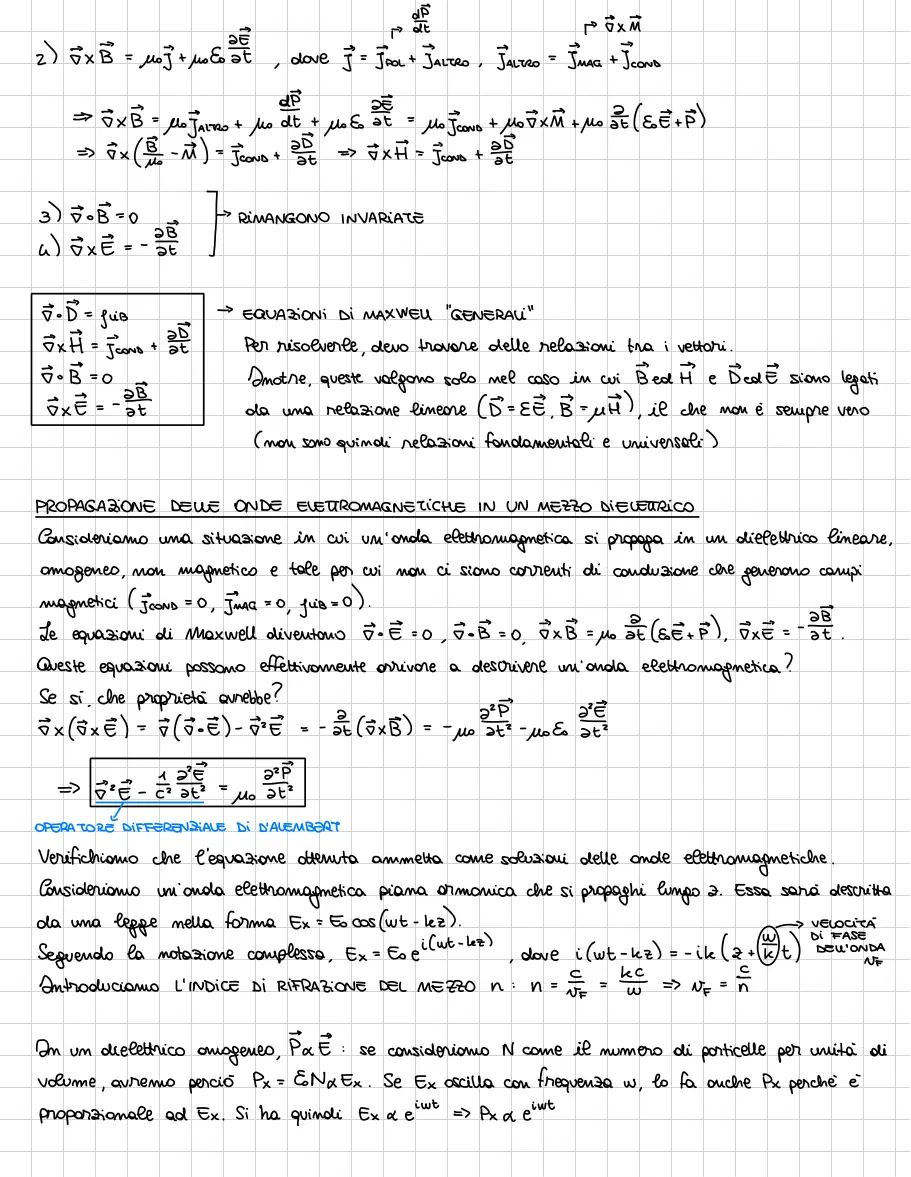 dP⃗/dt   ∇⃗×M⃗
2) ∇⃗×B⃗ = μ₀j⃗ + μ₀ε₀ ∂E⃗/∂t , dove j⃗ = j⃗POL + j⃗ALTRO , j⃗ALTRO = j⃗MAG + j⃗COND
⇒ ∇⃗×B⃗ = μ₀j⃗ALTRO + μ₀ dP⃗/dt + μ₀ε₀ ∂E⃗/∂t = μ₀j⃗COND + μ₀∇⃗×M⃗ + μ₀ ∂/∂t (ε₀E⃗+P⃗)
⇒ ∇⃗×(B⃗/μ₀ - M⃗) = j⃗COND + ∂D⃗/∂t ⇒ ∇⃗×H⃗ = j⃗COND + ∂D⃗/∂t
3) ∇⃗∘B⃗ = 0 → RIMANGONO INVARIATE
4) ∇⃗×E⃗ = - ∂B⃗/∂t
∇⃗·D⃗ = ρLIB → EQUAZIONI DI MAXWELL "GENERALI"
∇⃗×H⃗ = j⃗COND + ∂D⃗/∂t Per risolverle, devo trovare delle relazioni tra i vettori.
∇⃗∘B⃗ = 0 Inoltre, queste valgono solo nel caso in cui B⃗ ed H⃗ e D⃗ ed E⃗ siano legati
∇⃗×E⃗ = - ∂B⃗/∂t da una relazione lineare (D⃗=εE⃗, B⃗=μH⃗), il che non è sempre vero
(non sono quindi relazioni fondamentali e universali)
PROPAGAZIONE DELLE ONDE ELETTROMAGNETICHE IN UN MEZZO DIELETTRICO
Consideriamo una situazione in cui un'onda elettromagnetica si propaga in un dielettrico lineare,
omogeneo, non magnetico e tale per cui non ci siano correnti di conduzione che generano campi
magnetici (j⃗COND = 0, j⃗MAG = 0, ρLIB = 0).
Le equazioni di Maxwell diventano ∇⃗·E⃗ = 0, ∇⃗∘B⃗ = 0, ∇⃗×B⃗ = μ₀ ∂/∂t (ε₀E⃗+P⃗), ∇⃗×E⃗ = - ∂B⃗/∂t .
Queste equazioni possono effettivamente arrivare a descrivere un'onda elettromagnetica?
Se sì, che proprietà avrebbe?
∇⃗×(∇⃗×E⃗) = ∇⃗(∇⃗·E⃗) - ∇⃗²E⃗ = - ∂/∂t (∇⃗×B⃗) = -μ₀ ∂²P⃗/∂t² - μ₀ε₀ ∂²E⃗/∂t²
⇒ ∇⃗²E⃗ - 1/c² ∂²E⃗/∂t² = μ₀ ∂²P⃗/∂t²
OPERATORE DIFFERENZIALE DI D'ALEMBERT
Verifichiamo che l'equazione ottenuta ammetta come soluzioni delle onde elettromagnetiche.
Consideriamo un'onda elettromagnetica piana armonica che si propaghi lungo z. Essa sarà descritta
da una legge nella forma Ex = E₀ cos(wt - kz).
Seguendo la notazione complessa, Ex = E₀ e^i(wt-kz) , dove i(wt-kz) = -ik (z + w/k t) → VELOCITÀ DI FASE DELL'ONDA vF
Introduciamo L'INDICE DI RIFRAZIONE DEL MEZZO n : n = c/vF = kc/w ⇒ vF = c/n
In un dielettrico omogeneo, P⃗ α E⃗ : se consideriamo N come il numero di particelle per unità di
volume, avremo perciò Px = εNα Ex. Se Ex oscilla con frequenza w, lo fa anche Px perché è
proporzionale ad Ex. Si ha quindi Ex α e^iwt ⇒ Px α e^iwt